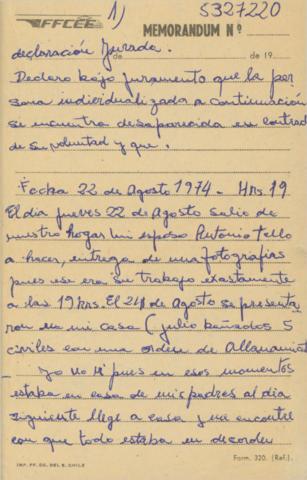 FFCCE
1)
5327220
MEMORANDUM Nº
declaración Jurada.
de de 19
Declaro bajo juramento que la per
sona individualizada a continuación
se encuentra desaparecida en contra
de su voluntad y que.
Fecha 22 de Agosto 1974 - Hrs. 19
El dia jueves 22 de Agosto salio de
nuestro hogar mi esposo Antonio Tello
a hacer, entrega de una fotografias
pues ese era su trabajo exastamente
a las 19 hrs. El 24 de Agosto se presenta
ron en mi casa ( julio bañados 5
civiles con una orden de Allanamient
Yo no vi pues en esos momentos
estaba en casa de mis padres al dia
siguiente llege a casa y me encontre
con que todo estaba en desorden
IMP. FF. CC. DEL E. CHILE
Form. 320. (Ref.)